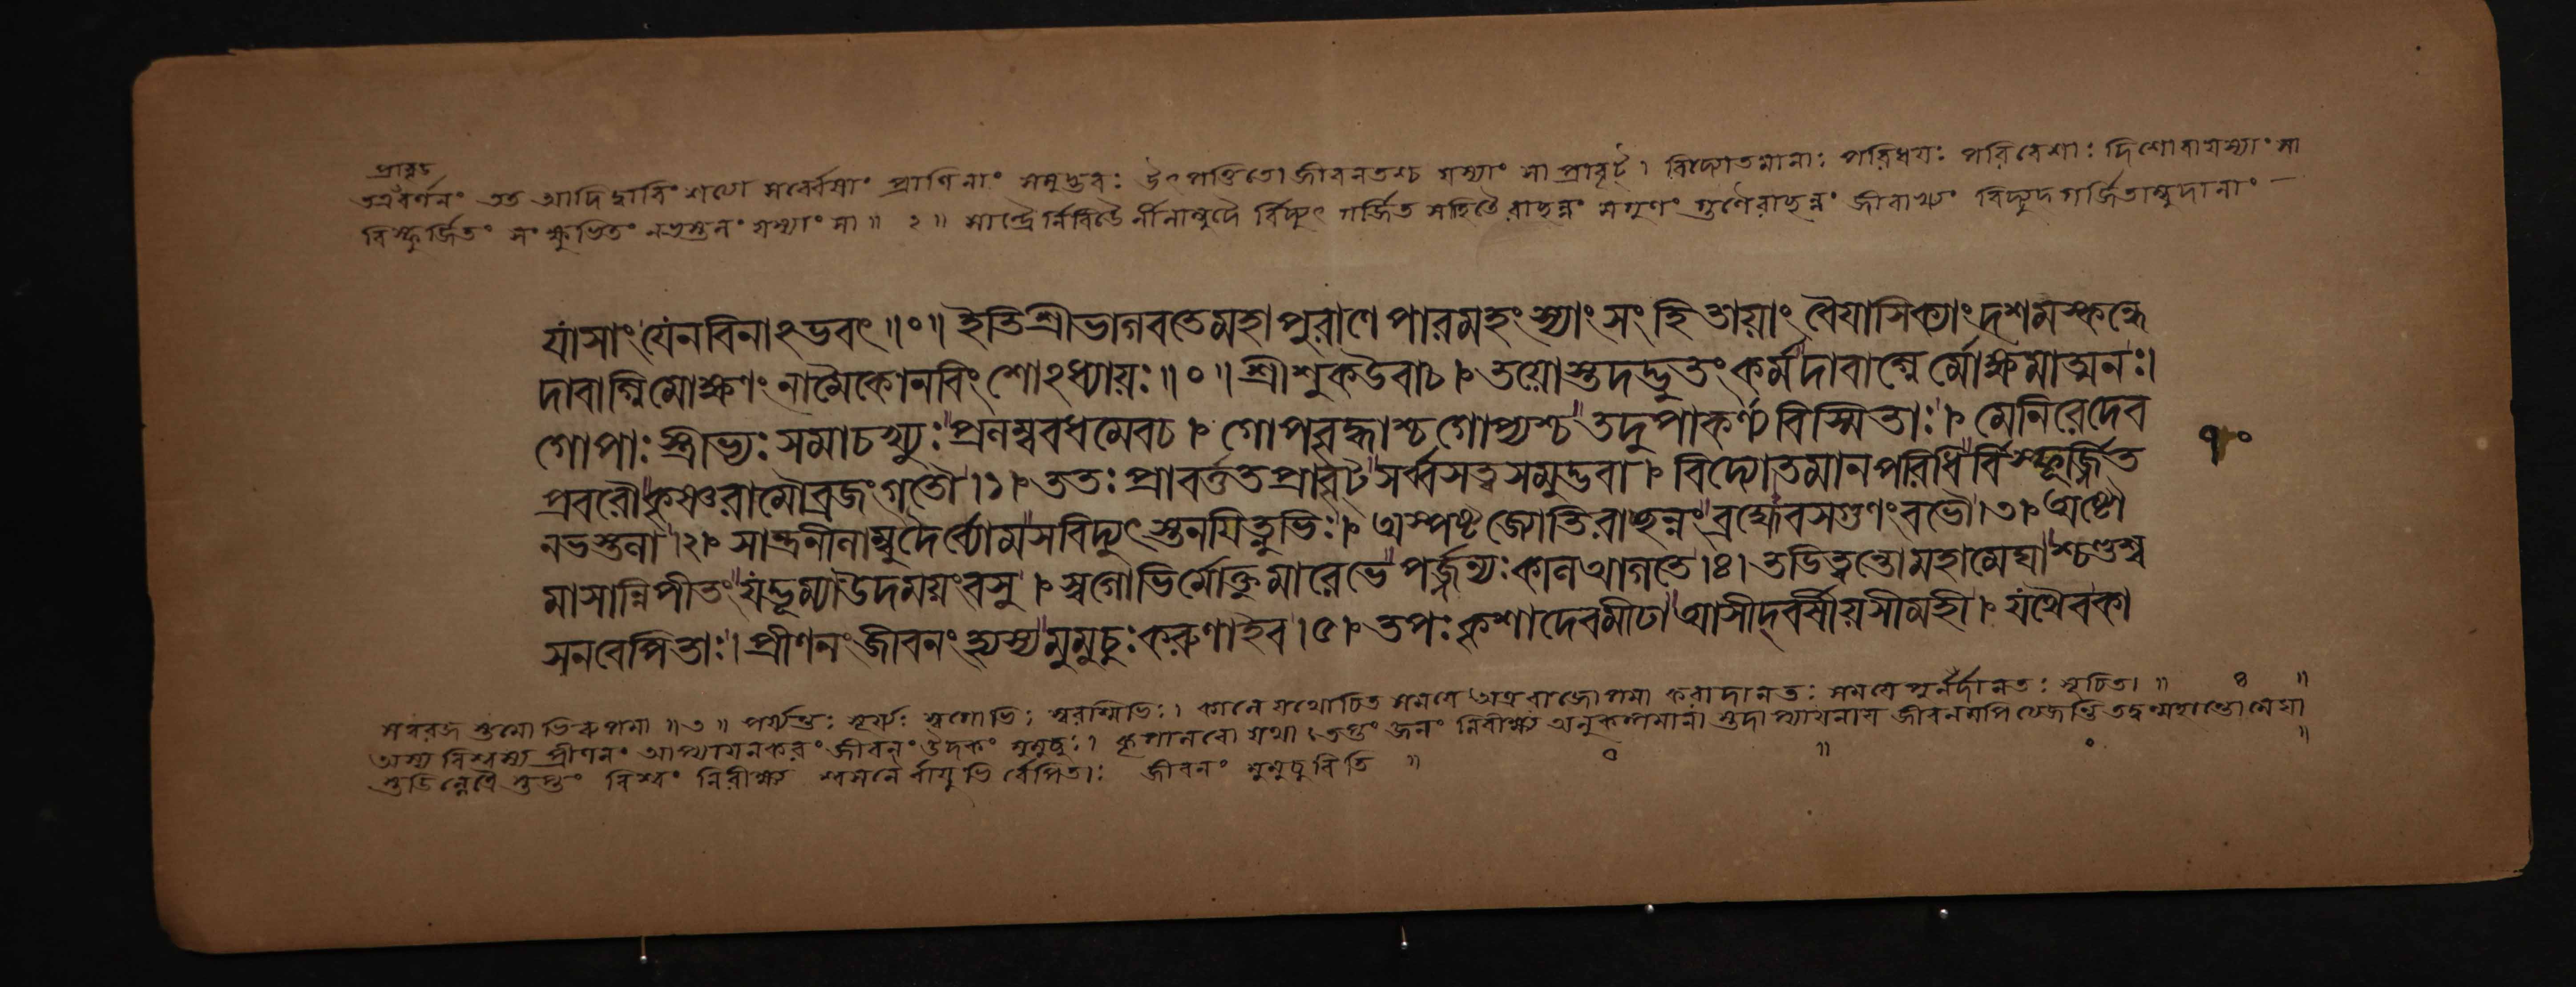 প্রাবৃড
তত্রবর্ণনং তত আদি দ্বাবিংশত্যা সর্ব্বেষাং প্রাণিনাং সমুদ্ভবঃ উৎপত্তিতো জীবনতশ্চ যস্যাং সা প্রাবৃট্। বিদ্যোতমানাঃ পরিধয়ঃ পরিবেশাঃ দিশোবা যস্যাং সা
বিস্ফূর্জিতং সংক্ষুভিতং নভস্তলং যস্যাং সা॥ ২॥ সান্দ্রৈর্নিবিডৈ র্নীলাম্বুদৈ র্বিদ্যুৎ গর্জিত সহিতৈরাছন্নং সগুণং গুণৈরাছন্নং জীবাখ্যং বিদ্যুদ গর্জিতাম্বুদানাং
যাসাং যেন বিনাঽভবৎ॥০॥ ইতিশ্রীভাগবতেমহাপুরাণে পারমহংস্যাং সংহিতায়াং বৈয়াসিক্যাং দশমস্কন্ধে
দাবাগ্নিমোক্ষণং নামৈকোনবিংশোঽধ্যায়ঃ॥০॥ শ্রীশুকউবাচ। তয়োস্তদদ্ভুতং কর্ম দাবাগ্নের্মোক্ষমাত্মনঃ।
গোপাঃ স্ত্রীভ্যঃ সমাচখ্যুঃ প্রলম্ববধমেবচ। গোপবৃদ্ধাশ্চ গোপ্যশ্চ তদুপাকর্ণ্য বিস্মিতাঃ। মেনিরেদেব
প্রবরৌ কৃষ্ণরামৌব্রজংগতৌ।১। ততঃ প্রাবর্ত্তত প্রাবৃট্ সর্ব্বসত্ত্বসমুদ্ভবা। বিদ্যোতমানপরিধির্বিস্ফূর্জ্জিত
৭০
নভস্তলা।২। সান্দ্রনীলাম্বুদৈর্ব্যোমসবিদ্যুৎস্তনয়িত্নুভিঃ। অস্পষ্ট জ্যোতিরাছন্নং ব্রহ্মেবসগুণং বভৌ।৩। অষ্টৌ
মাসান্নিপীতং যদ্ভূম্যাউদময়ংবসু। স্বগোভির্মোক্তুমারেভে পর্জ্জন্যঃ কাল আগতে।৪। তডিত্বন্তোমহামেঘাশ্চণ্ডশ্ব
সনবেপিতাঃ। প্রীণনং জীবনং হ্যস্য মুমুচুঃ করুণাইব।৫। তপঃ কৃশাদেবমীঢা আসীদ্বর্ষীয়সীমহী। যথৈবকা
সত্বরজ স্তমো ভিরুপমা॥৩॥ পর্জ্জন্যঃ সূর্য্যঃ স্বগোভিঃ স্বরশ্মিভিঃ। কালে যথোচিত সময়ে অত্র রাজোপমা করাদানতঃ সময়ে পুনর্দানতঃ সূচিতা॥ ৪ ॥
অস্য বিশ্বস্য প্রীণনং আপ্যায়নকরং জীবনং উদকং মুমুচুঃ। কৃপালবো যথা তপ্তং জনং নিরীক্ষ্য অনুকম্পমানা স্তদাপ্যায়নায় জীবনমপি ত্যজন্তি তদ্বন্মহান্তো মেঘা
স্তডিন্নেত্রৈ স্তপ্তং বিশ্বং নিরীক্ষ্য শ্বসনৈ র্বায়ুভি র্বেপিতাঃ জীবনং মুমুচুরিতি॥ ০ ॥ ০ ॥